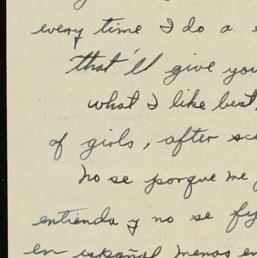 every time I do a
that'll give you
what I like best
of girls, after sc
No se porque me
entienda y no se fij
en español menos en